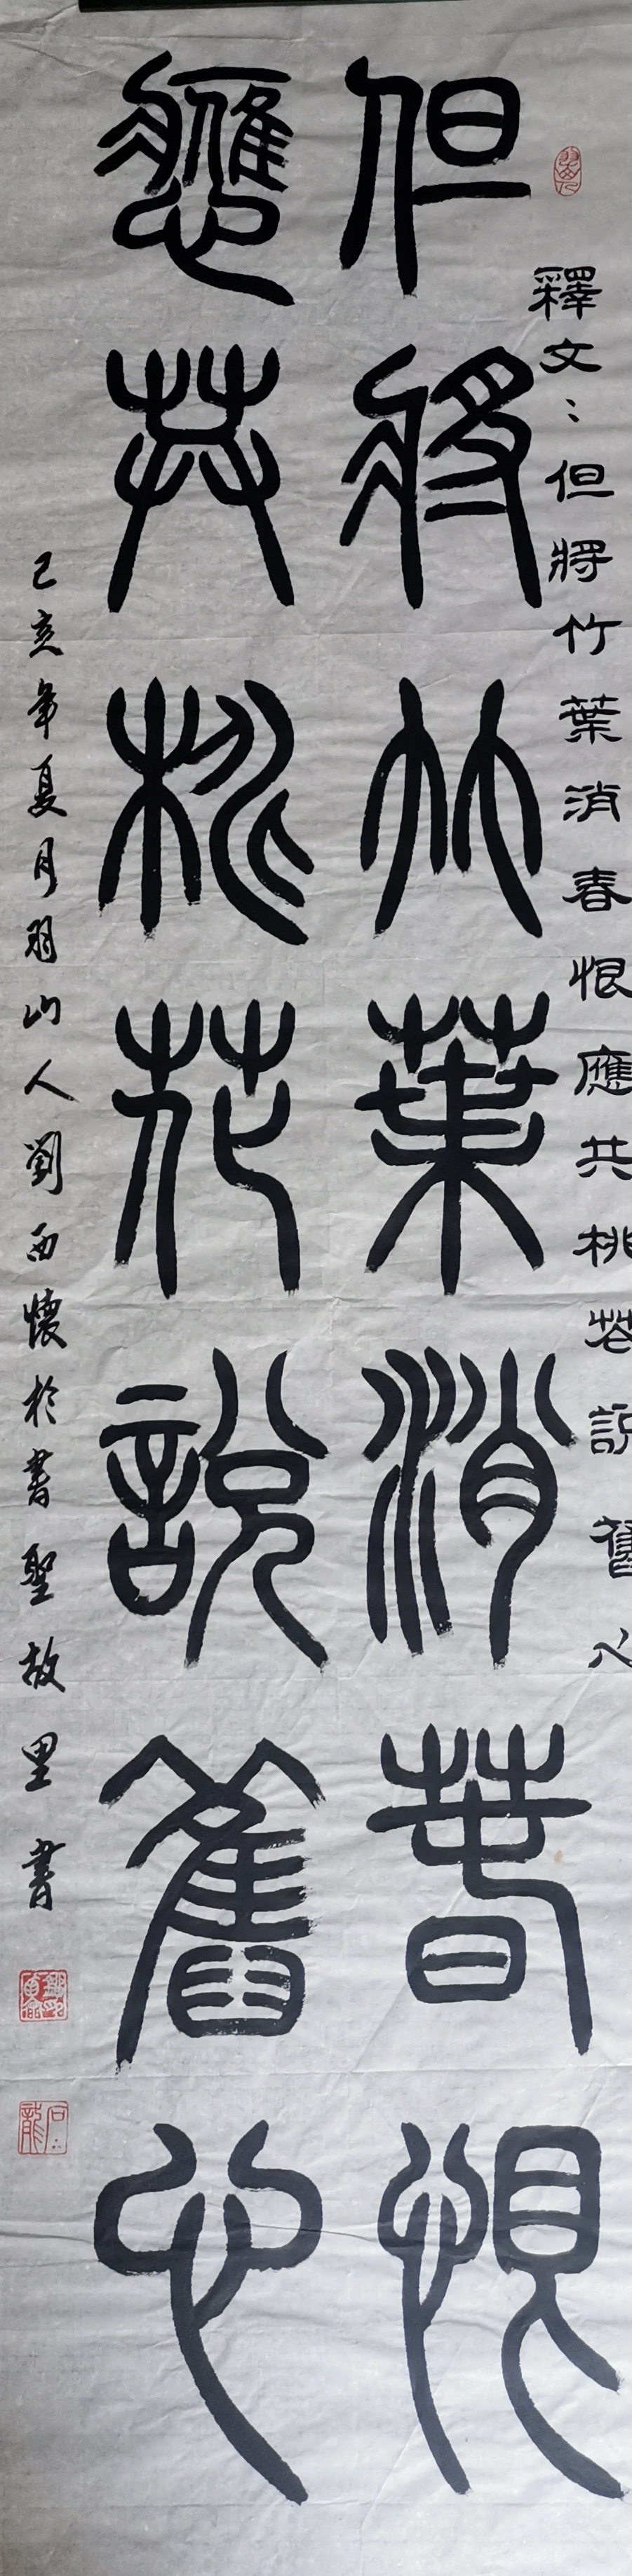 釋文：但將竹葉消春恨應共桃花說舊心
但將竹葉消春恨
應共桃花說舊心
己亥年夏月羽山人劉西懷於書聖故里書